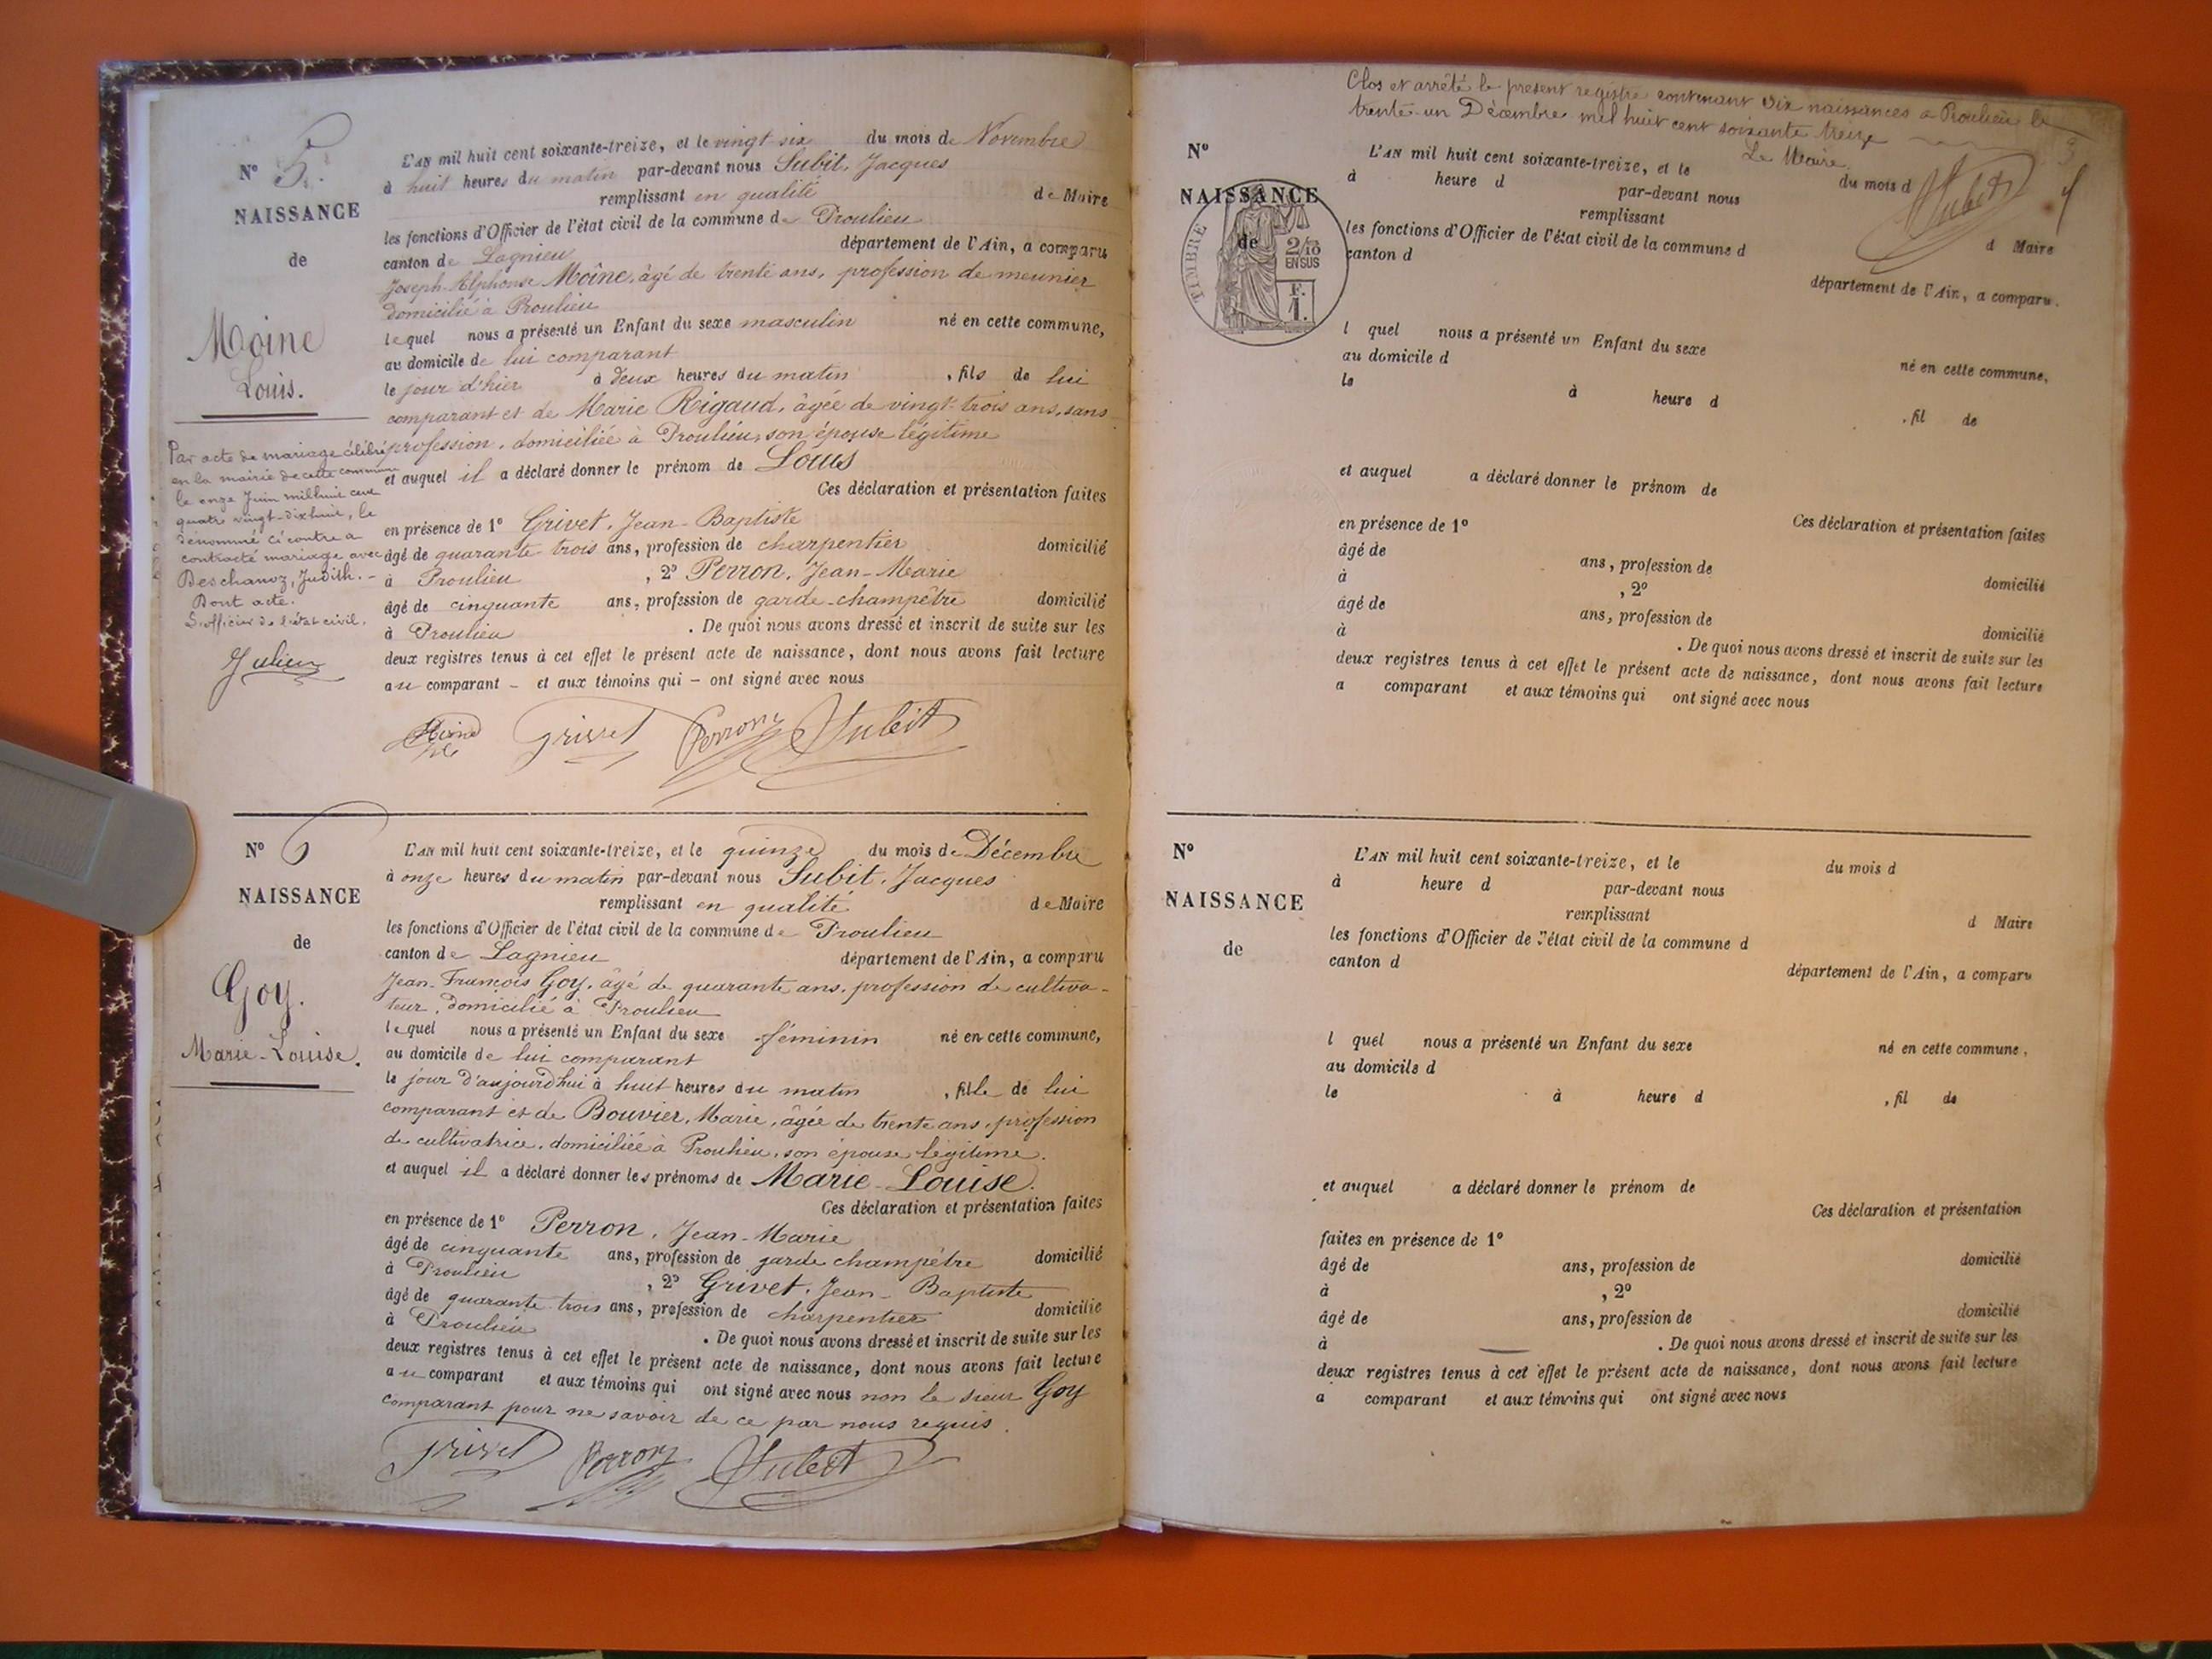 N° 5.
NAISSANCE
de
Moine
Louis.
L'AN mil huit cent soixante-treize, et le vingt six du mois de Novembre
à huit heures du matin par-devant nous Subit, Jacques
remplissant en qualité de Maire
les fonctions d'Officier de l'état civil de la commune de Proulieu
canton de Lagnieu département de l'Ain, a comparu
Joseph-Alphonse Moine, âgé de trente ans, profession de meunier
domicilié à Proulieu
lequel nous a présenté un Enfant du sexe masculin né en cette commune,
au domicile de lui comparant
le jour d'hier à deux heures du matin , fils de lui
comparant et de Marie Rigaud, âgée de vingt-trois ans, sans
profession, domiciliée à Proulieu, son épouse légitime
et auquel il a déclaré donner le prénom de Louis
Ces déclaration et présentation faites
en présence de 1° Grivet, Jean-Baptiste
âgé de quarante-trois ans, profession de charpentier domicilié
à Proulieu , 2° Perron, Jean-Marie
âgé de cinquante ans, profession de garde-champêtre domicilié
à Proulieu . De quoi nous avons dressé et inscrit de suite sur les
deux registres tenus à cet effet le présent acte de naissance, dont nous avons fait lecture
au comparant – et aux témoins qui – ont signé avec nous
Grivet Perron Subit
Par acte de mariage célébré
en la mairie de cette commune
le onze Juin mil huit cent
quatre vingt-dix huit, le
dénommé ci contre a
contracté mariage avec
Deschanoz, Judith. –
Dont acte.
L'officier de l'état civil,
Julien
N° 6
NAISSANCE
de
Goy.
Marie-Louise.
L'AN mil huit cent soixante-treize, et le quinze du mois de Décembre
à onze heures du matin par-devant nous Subit, Jacques
remplissant en qualité de Maire
les fonctions d'Officier de l'état civil de la commune de Proulieu
canton de Lagnieu département de l'Ain, a comparu
Jean-François Goy, âgé de quarante ans, profession de cultiva-
teur, domicilié à Proulieu
lequel nous a présenté un Enfant du sexe féminin né en cette commune,
au domicile de lui comparant
le jour d'aujourd'hui à huit heures du matin , fille de lui
comparant et de Bouvier, Marie, âgée de trente ans, profession
de cultivatrice, domiciliée à Proulieu, son épouse légitime.
et auquel il a déclaré donner les prénoms de Marie-Louise.
Ces déclaration et présentation faites
en présence de 1° Perron, Jean-Marie
âgé de cinquante ans, profession de garde champêtre domicilié
à Proulieu , 2° Grivet, Jean-Baptiste
âgé de quarante-trois ans, profession de charpentier domicilié
à Proulieu . De quoi nous avons dressé et inscrit de suite sur les
deux registres tenus à cet effet le présent acte de naissance, dont nous avons fait lecture
au comparant et aux témoins qui ont signé avec nous non le sieur Goy
comparant pour ne savoir de ce par nous requis.
Grivet Perron Subit
Clos et arrêté le présent registre contenant six naissances a Proulieu le
trente-un Décembre mil huit cent soixante treize
Le Maire,
Subit
3
N°
NAISSANCE
de
TIMBRE
2/10
EN SUS
F.
1.
L'AN mil huit cent soixante-treize, et le du mois d
à heure d par-devant nous
remplissant d Maire
les fonctions d'Officier de l'état civil de la commune d
canton d département de l'Ain, a comparu.
l quel nous a présenté un Enfant du sexe né en cette commune,
au domicile d
le à heure d , fil de
et auquel a déclaré donner le prénom de
Ces déclaration et présentation faites
en présence de 1°
âgé de ans, profession de domicilié
à , 2°
âgé de ans, profession de domicilié
à . De quoi nous avons dressé et inscrit de suite sur les
deux registres tenus à cet effet le présent acte de naissance, dont nous avons fait lecture
a comparant et aux témoins qui ont signé avec nous
N°
NAISSANCE
de
L'AN mil huit cent soixante-treize, et le du mois d
à heure d par-devant nous
remplissant d Maire
les fonctions d'Officier de l'état civil de la commune d
canton d département de l'Ain, a comparu
l quel nous a présenté un Enfant du sexe né en cette commune,
au domicile d
le à heure d , fil de
et auquel a déclaré donner le prénom de
Ces déclaration et présentation
faites en présence de 1°
âgé de ans, profession de domicilié
à , 2°
âgé de ans, profession de domicilié
à . De quoi nous avons dressé et inscrit de suite sur les
deux registres tenus à cet effet le présent acte de naissance, dont nous avons fait lecture
a comparant et aux témoins qui ont signé avec nous